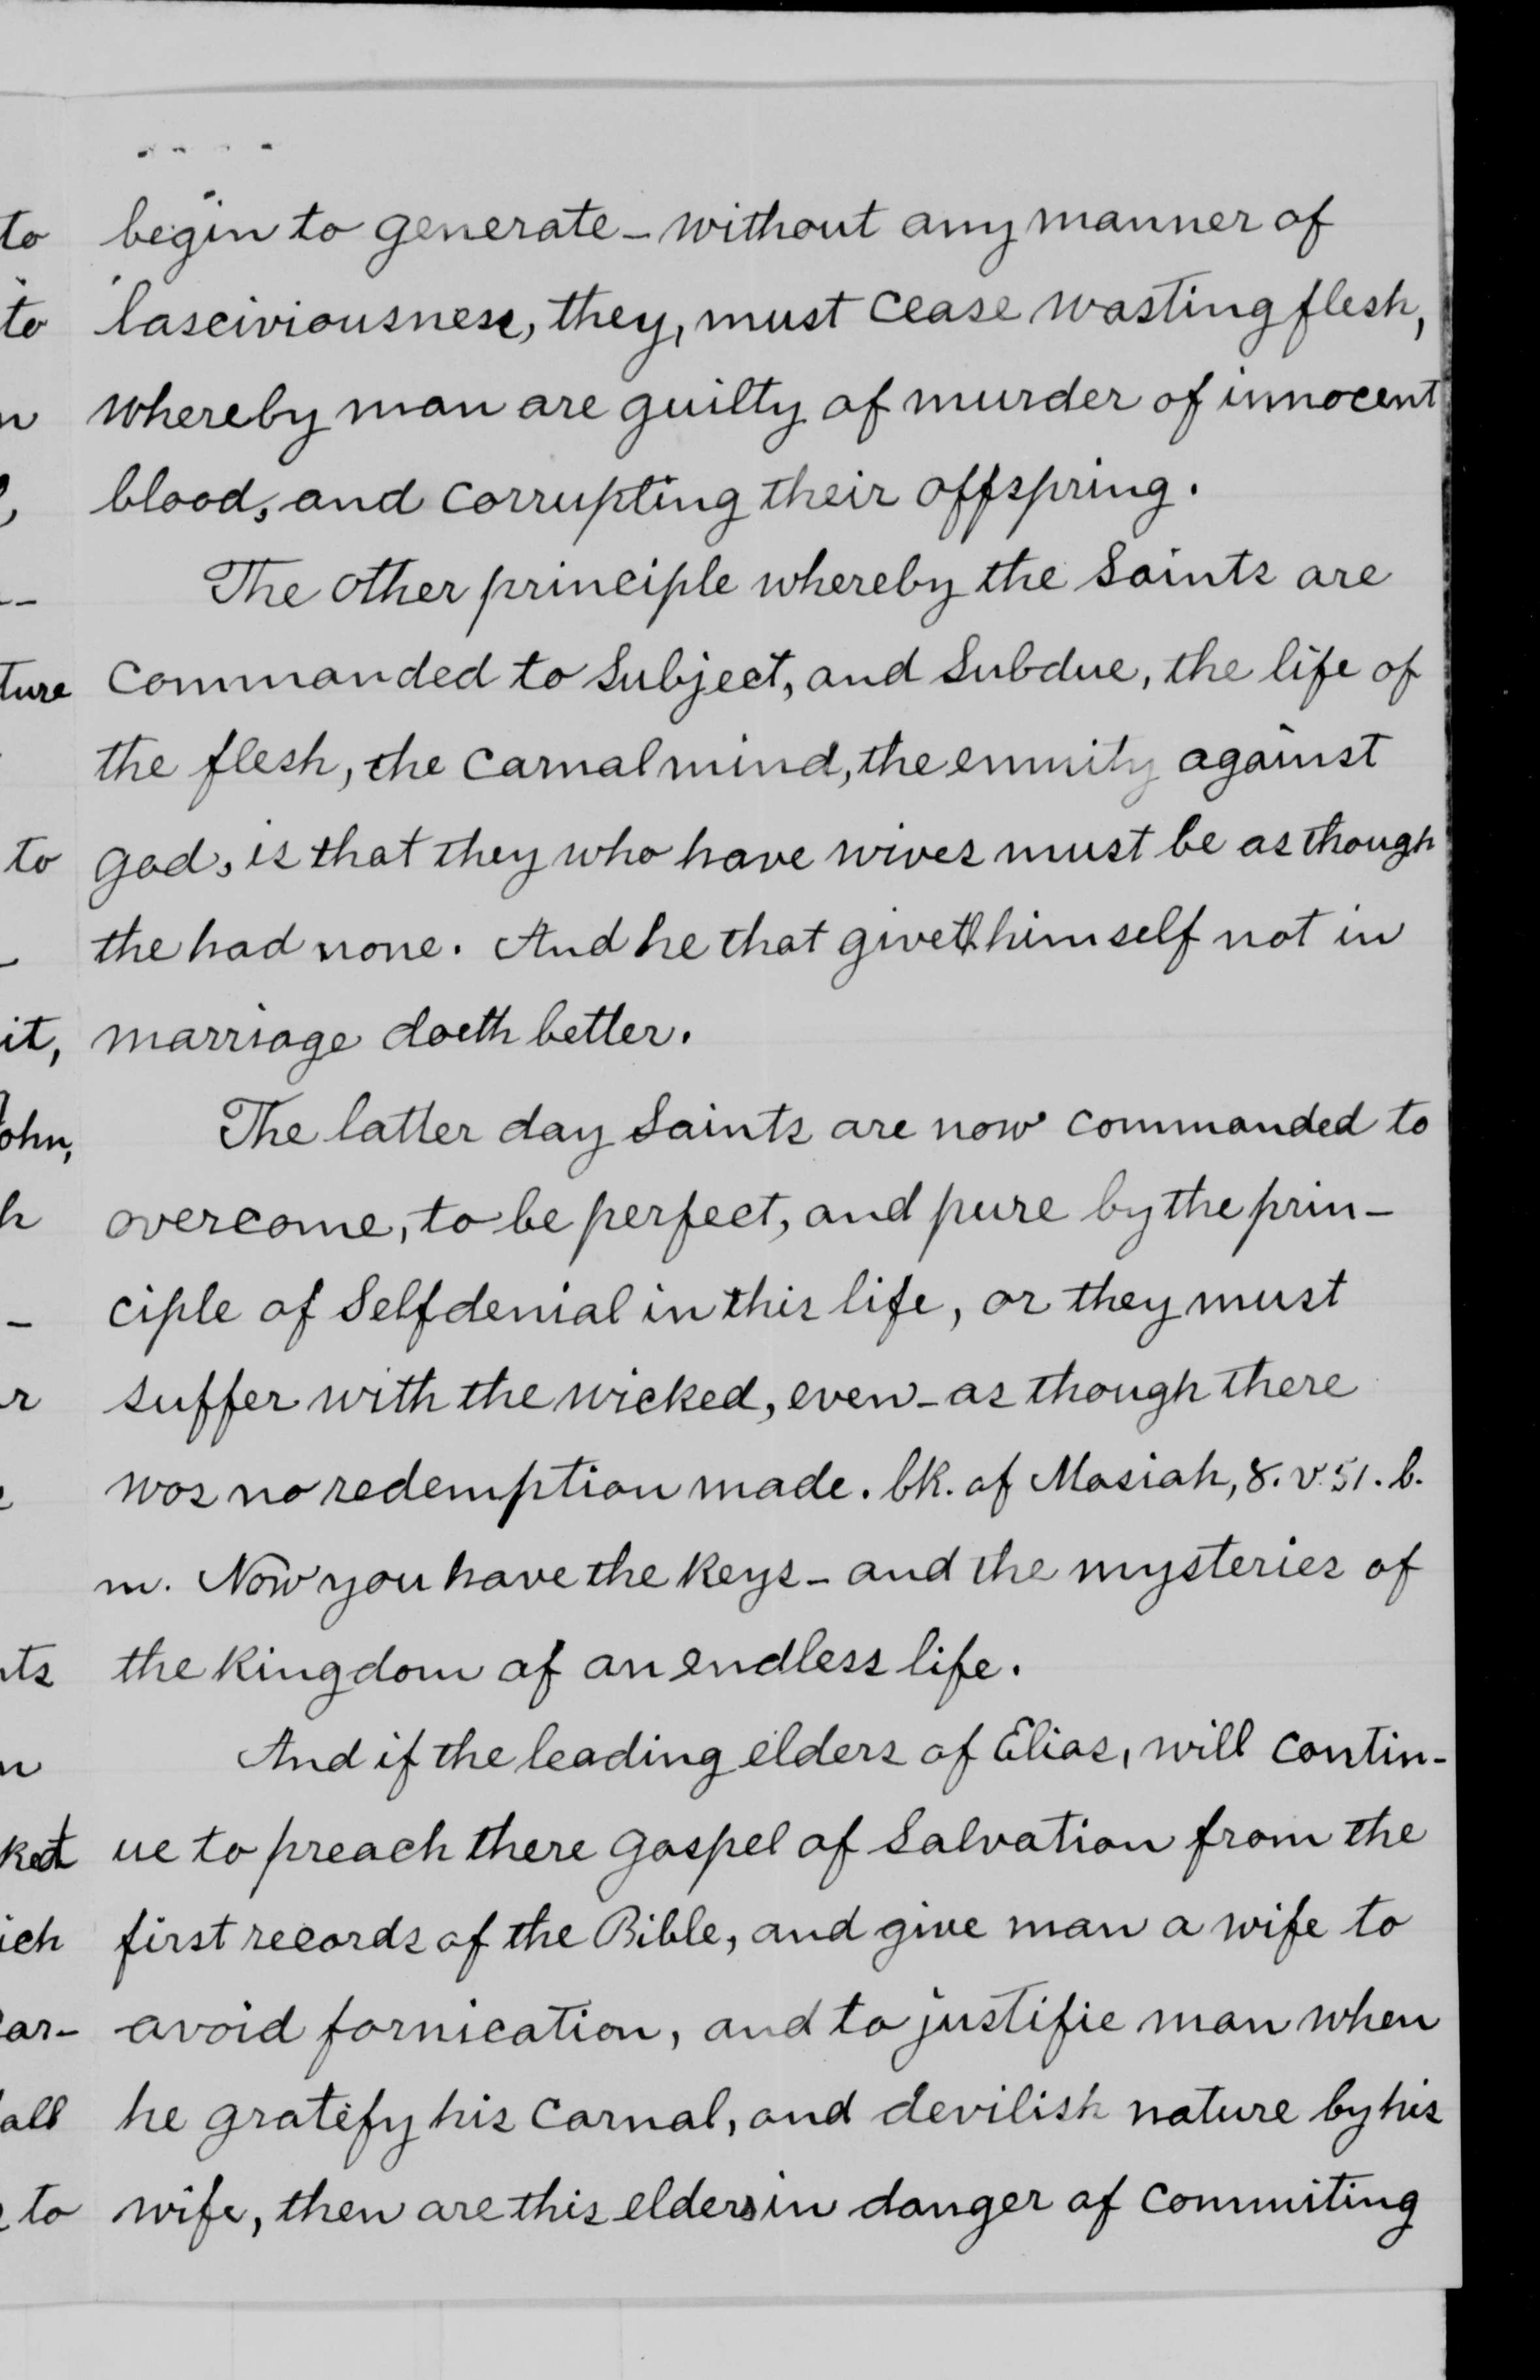 begin to generate – without any manner of
lasciviousness, they, must cease wasting flesh,
whereby man are guilty of murder of innocent
blood, and corrupting their offspring.
The other principle whereby the Saints are
commanded to Subject, and Subdue, the life of
the flesh, the carnal mind, the enmity against
god, is that they who have wives must be as though
the had none. And he that giveth himself not in
marriage doeth better.
The latter day Saints are now commanded to
overcome, to be perfect, and pure by the prin-
ciple of Selfdenial in this life, or they must
suffer with the wicked, even – as though there
was no redemption made. bk. of Mosiah, 8. v. 51. b.
m. Now you have the keys – and the mysteries of
the kingdom of an endless life.
And if the leading elders of Elias, will contin-
ue to preach there gospel of Salvation from the
first records of the Bible, and give man a wife to
avoid fornication, and to justifie man when
he gratefy his carnal, and devilish nature by his
wife, then are this elders in danger of commiting
to
to
n
ture
to
it,
ohn,
h
r
nts
n
ket
ich
ar-
all
to